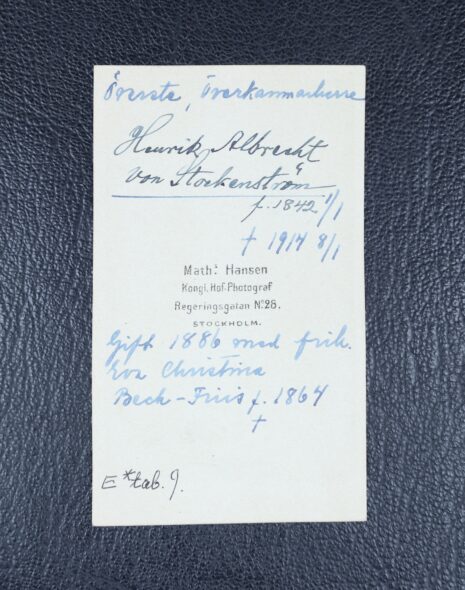 Överste, Överkammarherre
Henrik Albrecht
von Stockenström
f. 1842 1/1
† 1914 8/1
Math: Hansen
Kongl. Hof-Photograf
Regeringsgatan No 28.
STOCKHOLM.
Gift 1886 med frih.
Eva Christina
Beck-Friis f. 1864
†
E * tab. 9.